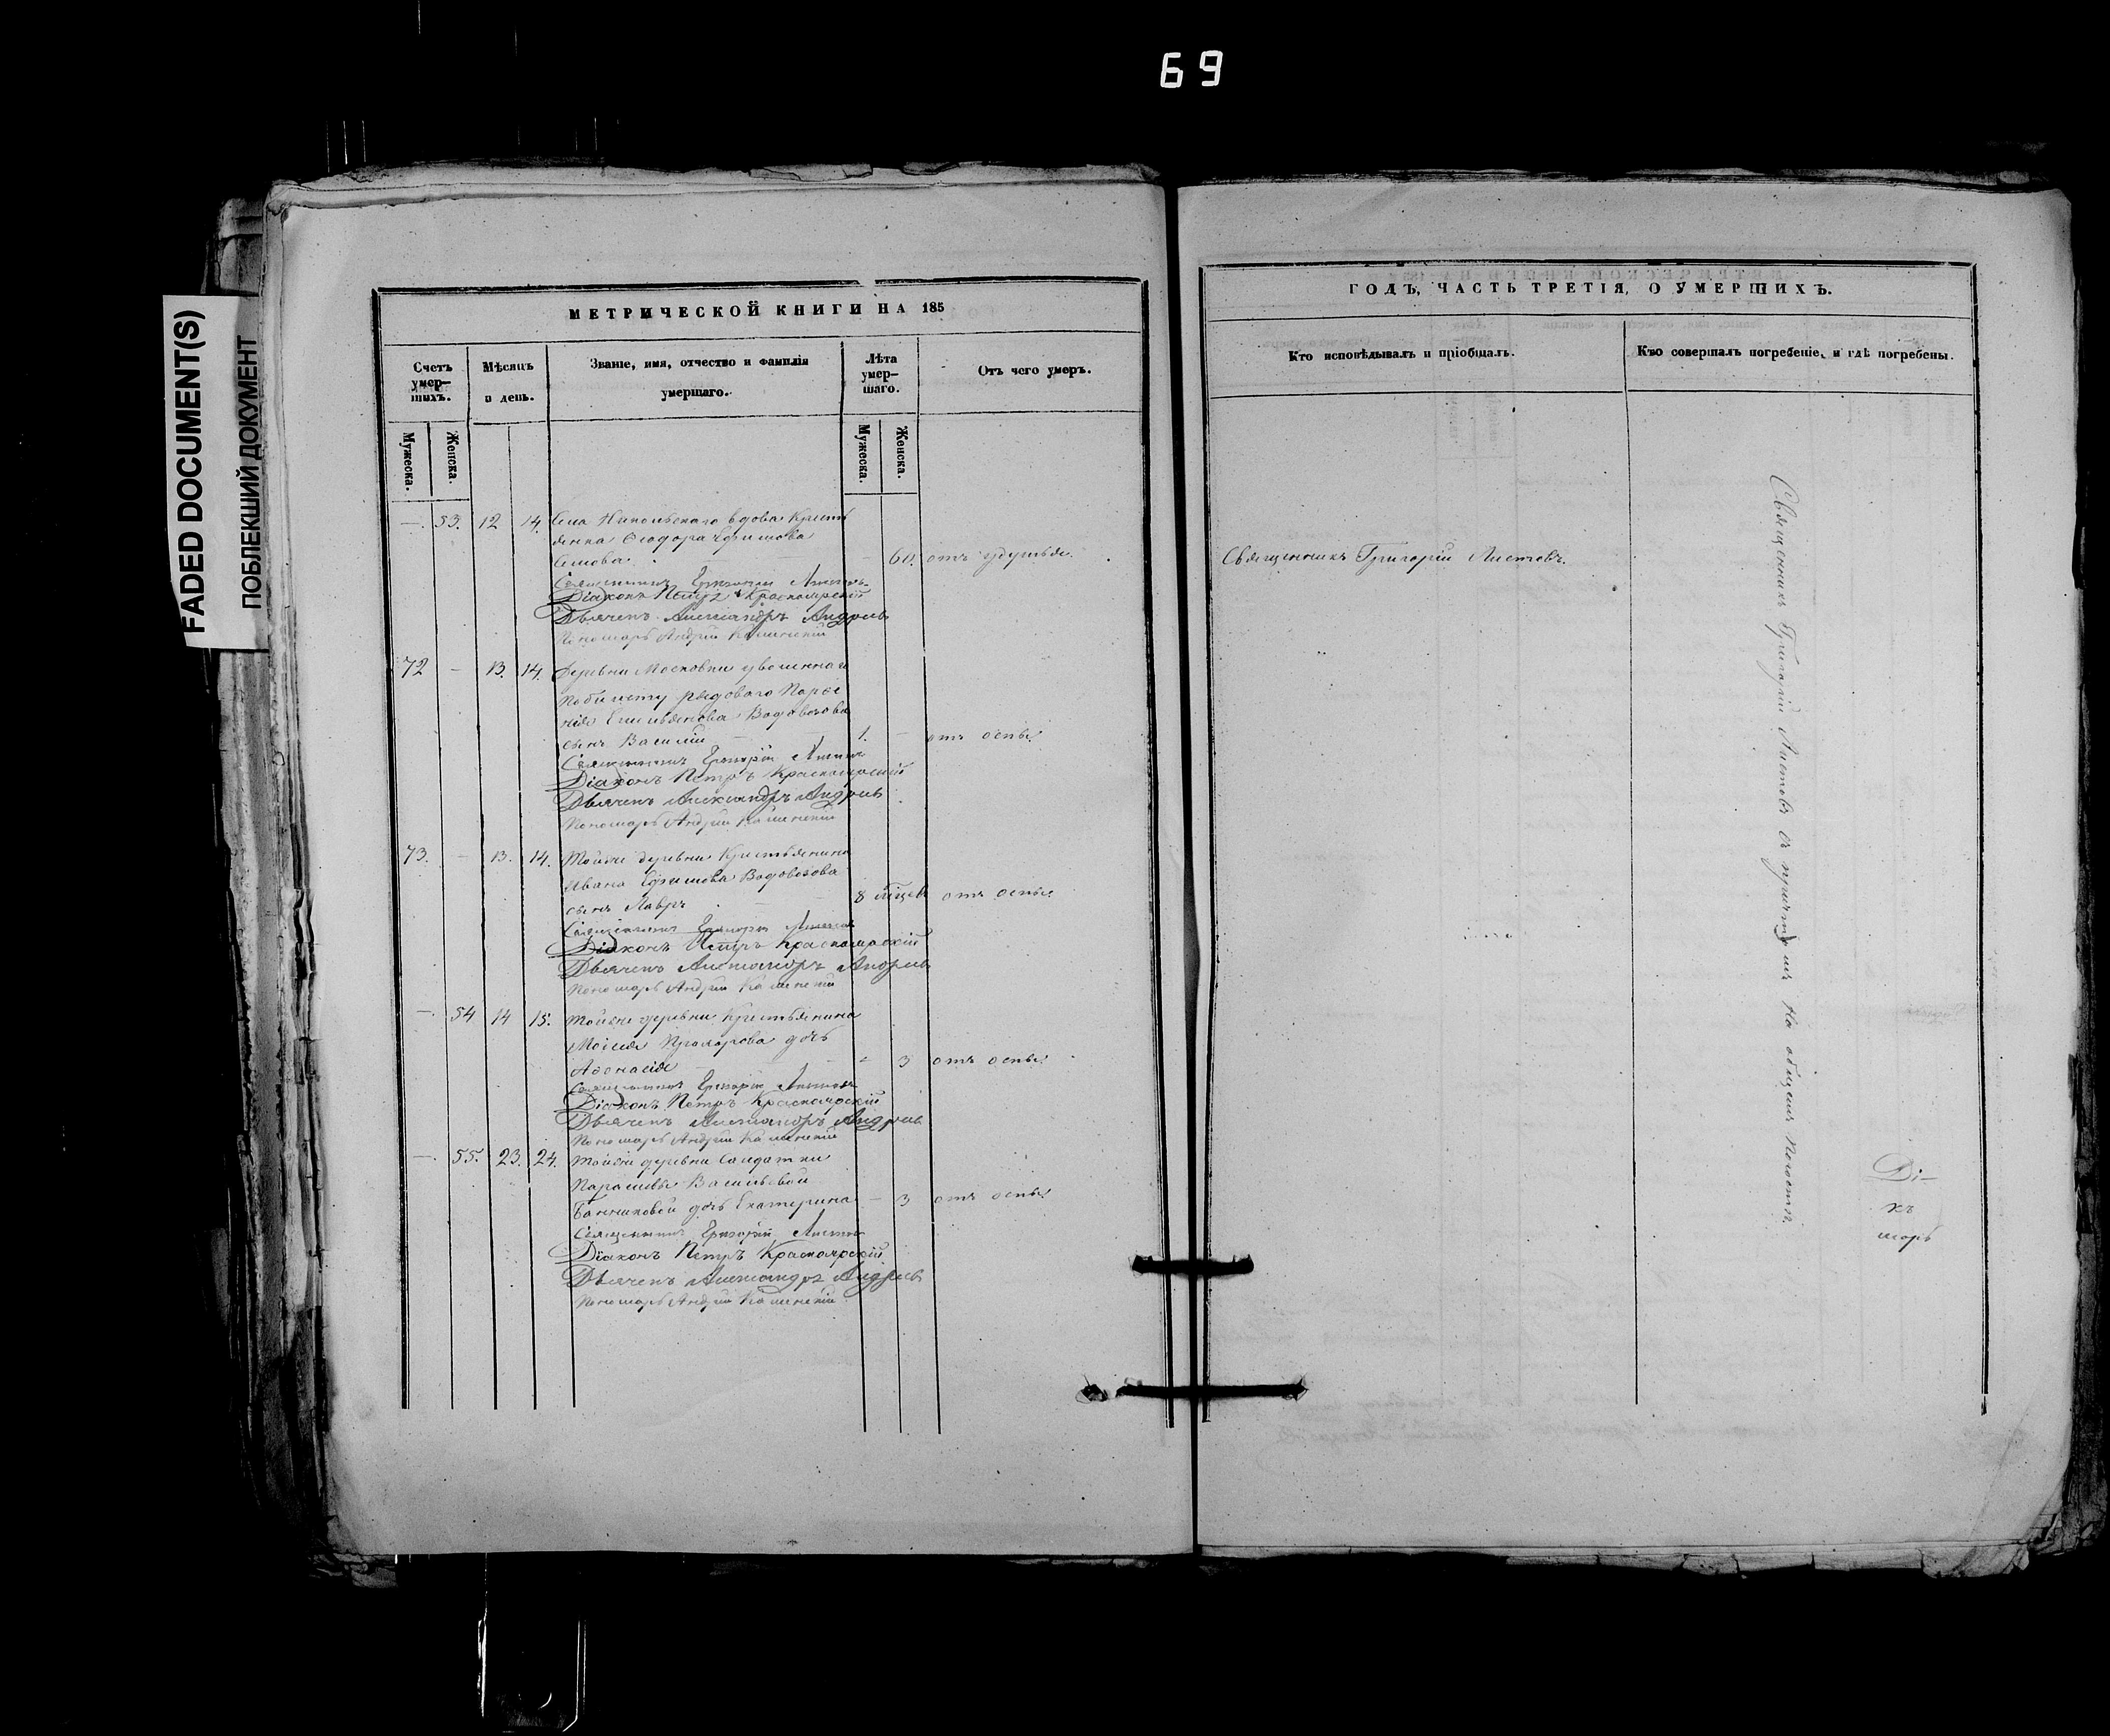 69
FADED DOCUMENT(S)
ПОБЛЕКШИЙ ДОКУМЕНТ
МЕТРИЧЕСКОЙ КНИГИ НА 185
Счетъ умер-
шихъ.
Мѣсяцъ
и день.
Званіе, имя, отчество и фамилія
умершаго.
Лѣта
умер-
шаго.
Отъ чего умеръ.
Мужеска.
Женска.
Мужеска.
Женска.
—. 53. 12 14. Села Никольскаго вдова Кресть
янка Ѳеодора Ефимова
— 60. отъ удушья.
Священникъ Григорій Листовъ
Діаконъ Петръ Красноярскій
Дьячекъ Александръ Андреевъ
Пономарь Андрей Каменскій
72 — 13. 14. Деревни Московки уволеннаго
по билету рядоваго Парѳе
нія Емельянова Водовозова
сынъ Василій 1. — отъ оспы
Священникъ Григорій Листовъ
Діаконъ Петръ Красноярскій
Дьячекъ Александръ Андреевъ
Пономарь Андрей Каменскій
73. — 13. 14. Тойже деревни Крестьянина
Ивана Ефимова Водовозова
сынъ Лавръ 8 мѣцев отъ оспы
Священникъ Григорій Листовъ
Діаконъ Петръ Красноярскій
Дьячекъ Александръ Андреевъ
Пономарь Андрей Каменскій
—. 54 14 15. Тойже деревни Крестьянина
Моисея Прохорова дочь
Аѳонасія — 3 отъ оспы
Священникъ Григорій Листовъ
Діаконъ Петръ Красноярскій
Дьячекъ Александръ Андреевъ
Пономарь Андрей Каменскій
—. 55. 23. 24. Тойже деревни Салдатки
Парасковьи Васильевой
дочь Екатерина — 3 отъ оспы
Священникъ Григорій Листовъ
Діаконъ Петръ Красноярскій
Дьячекъ Александръ Андреевъ
Пономарь Андрей Каменскій
ГОДЪ, ЧАСТЬ ТРЕТІЯ, О УМЕРШИХЪ.
Кто исповѣдывалъ и пріобщалъ.
Кто совершалъ погребеніе, и гдѣ погребены.
Священникъ Григорій Листовъ.
Священникъ Григорій Листовъ съ причтомъ На общемъ погостѣ.
Ді-
къ
марь